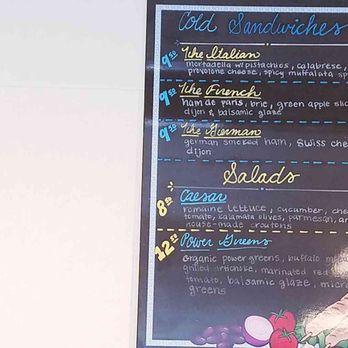 Cold Sandwiches
9.50 The Italian
mortadella w/pistachios, calabrese,
provolone cheese, spicy muffalata
9.50 The French
ham de paris, brie, green apple
dijon & balsamic glaze
9.50 The German
german smoked ham, swiss
dijon
Salads
8.50 Caesar
romaine lettuce, cucumber,
tomato, kalamata olives, parmesan,
house-made croutons
12.50 Power Greens
organic power greens, buffalo
grilled artichoke, marinated red
tomato, balsamic glaze,
greens